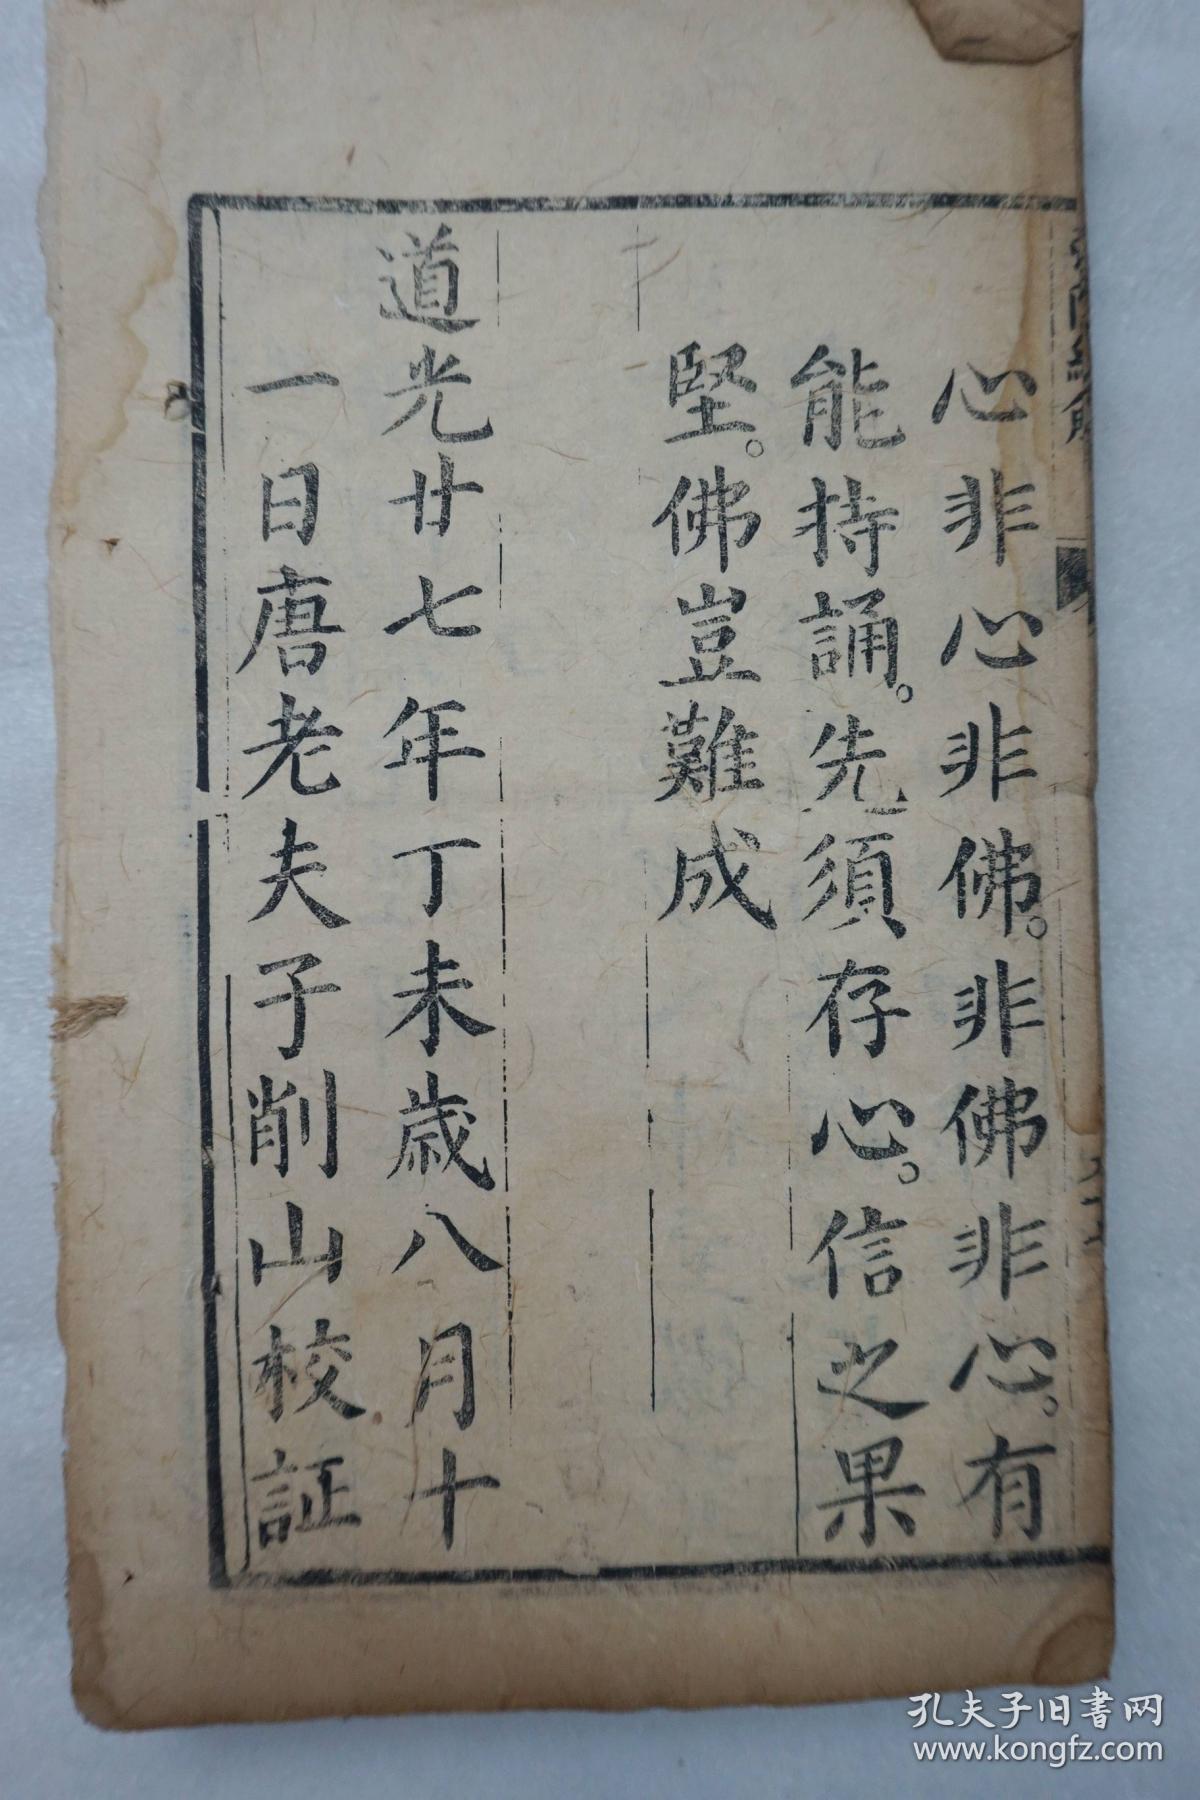 心非心非佛。非佛非心。有
能持誦。先須存心。信之果
堅。佛豈難成
道光廿七年丁未歲八月十
一日唐老夫子削山校証
孔夫子旧书网
www.kongfz.com